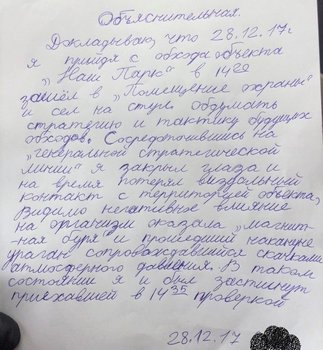 Объяснительная.
Докладываю, что 28.12.17г
я придя с обхода объекта
„Наш Парк" в 14²⁰
зашёл в „Помещение охраны"
и сел на стул обдумать
стратегию и тактику будущих
обходов. Сосредоточившись на
„генеральной стратегической
линии" я закрыл глаза и
на время потерял визуальный
контакт с территорией объекта,
Видимо негативное влияние
на организм оказала „магнит-
ная буря" и прошедший накануне
ураган сопровождавшийся скачками
атмосферного давления. В таком
состоянии я и был застигнут
приехавшей в 14³⁵ проверкой
28.12.17